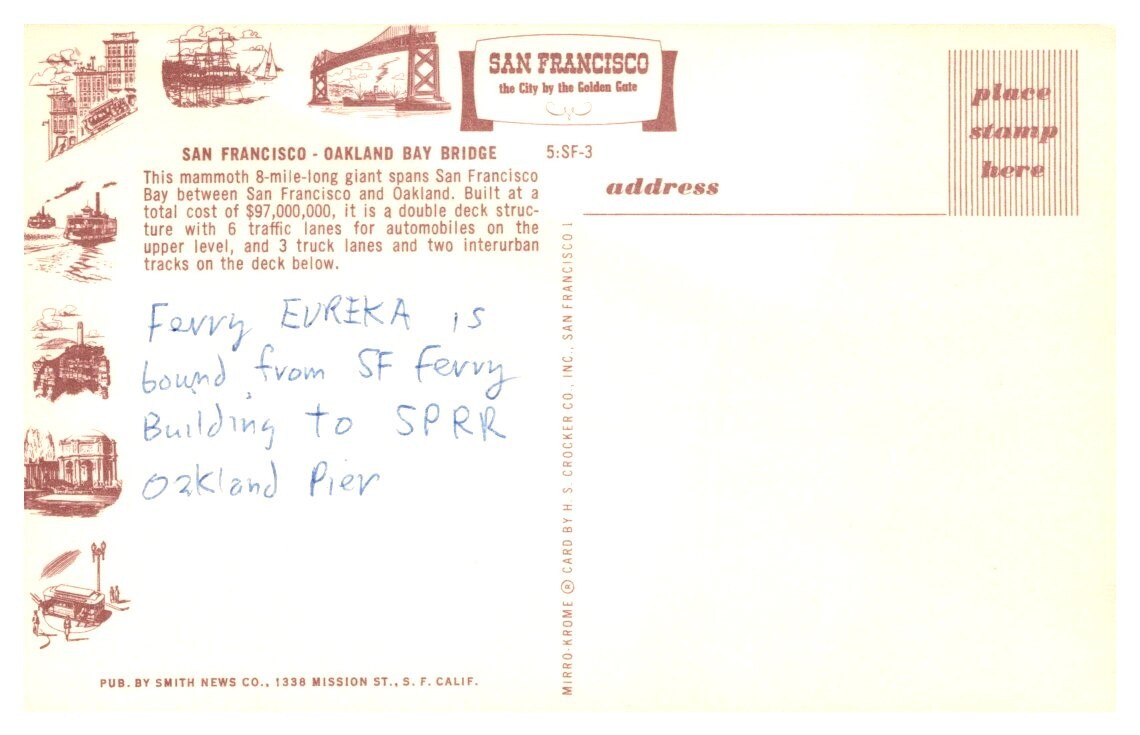 SAN FRANCISCO
the City by the Golden Gate
SAN FRANCISCO - OAKLAND BAY BRIDGE 5:SF-3
This mammoth 8-mile-long giant spans San Francisco
Bay between San Francisco and Oakland. Built at a
total cost of $97,000,000, it is a double deck struc-
ture with 6 traffic lanes for automobiles on the
upper level, and 3 truck lanes and two interurban
tracks on the deck below.
Ferry EUREKA is
bound from SF Ferry
Building to SPRR
Oakland Pier
PUB. BY SMITH NEWS CO., 1338 MISSION ST., S. F. CALIF.
MIRRO-KROME ® CARD BY H. S. CROCKER CO., INC., SAN FRANCISCO 1
address
place
stamp
here